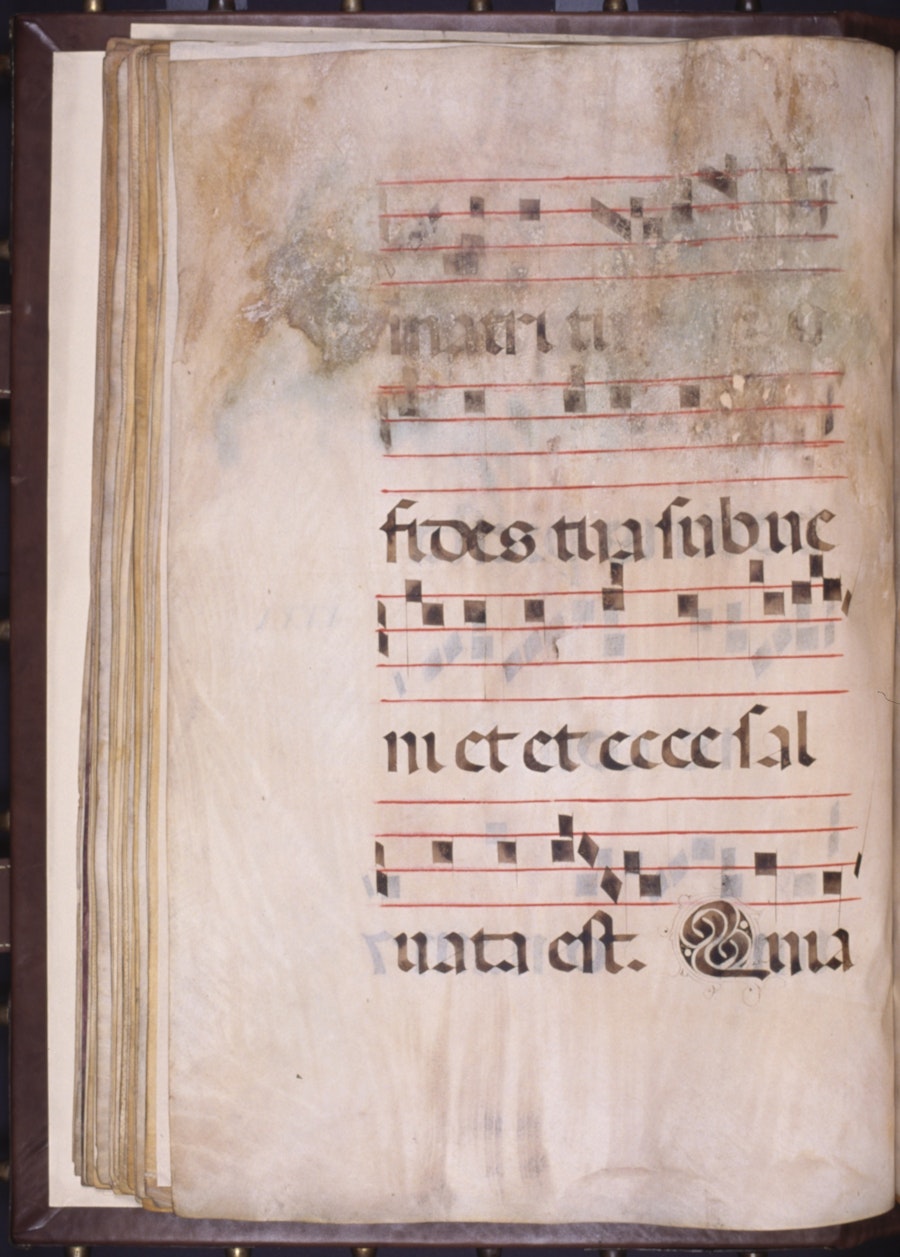 matri tu
fides tua subue
ni et et ecce sal
uata est. Quia